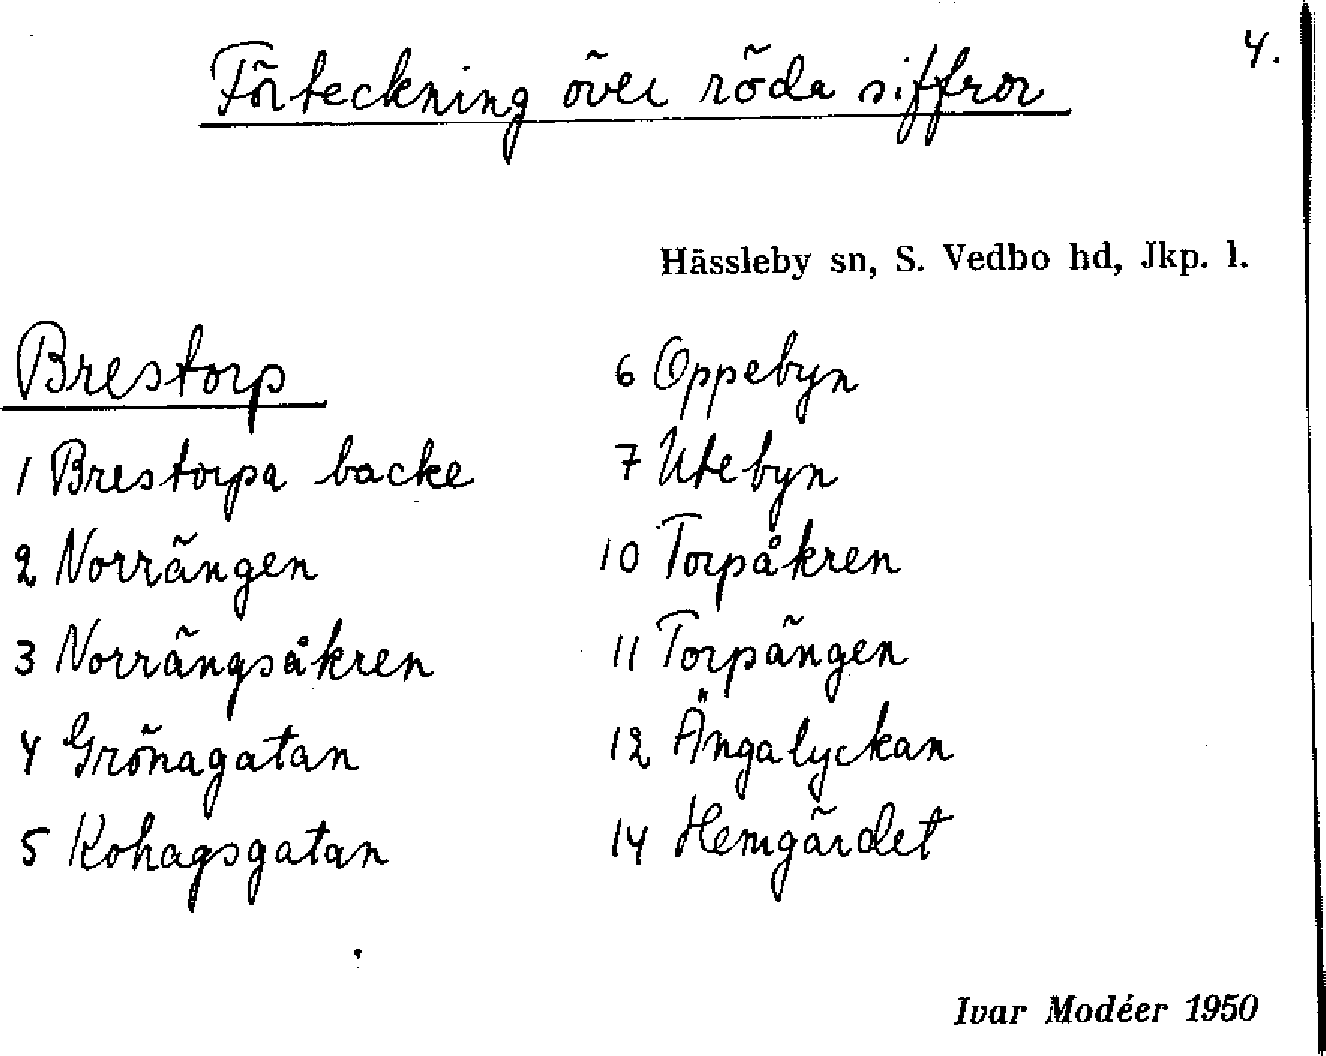 4.
Förteckning över röda siffror
Hässleby sn, S. Vedbo hd, Jkp. l.
Brestorp
1 Brestorpa backe
2 Norrängen
3 Norrängsåkren
4 Grönagatan
5 Kohagsgatan
6 Oppebyn
7 Utebyn
10 Torpåkren
11 Torpängen
12 Ängalyckan
14 Hemgärdet
Ivar Modéer 1950